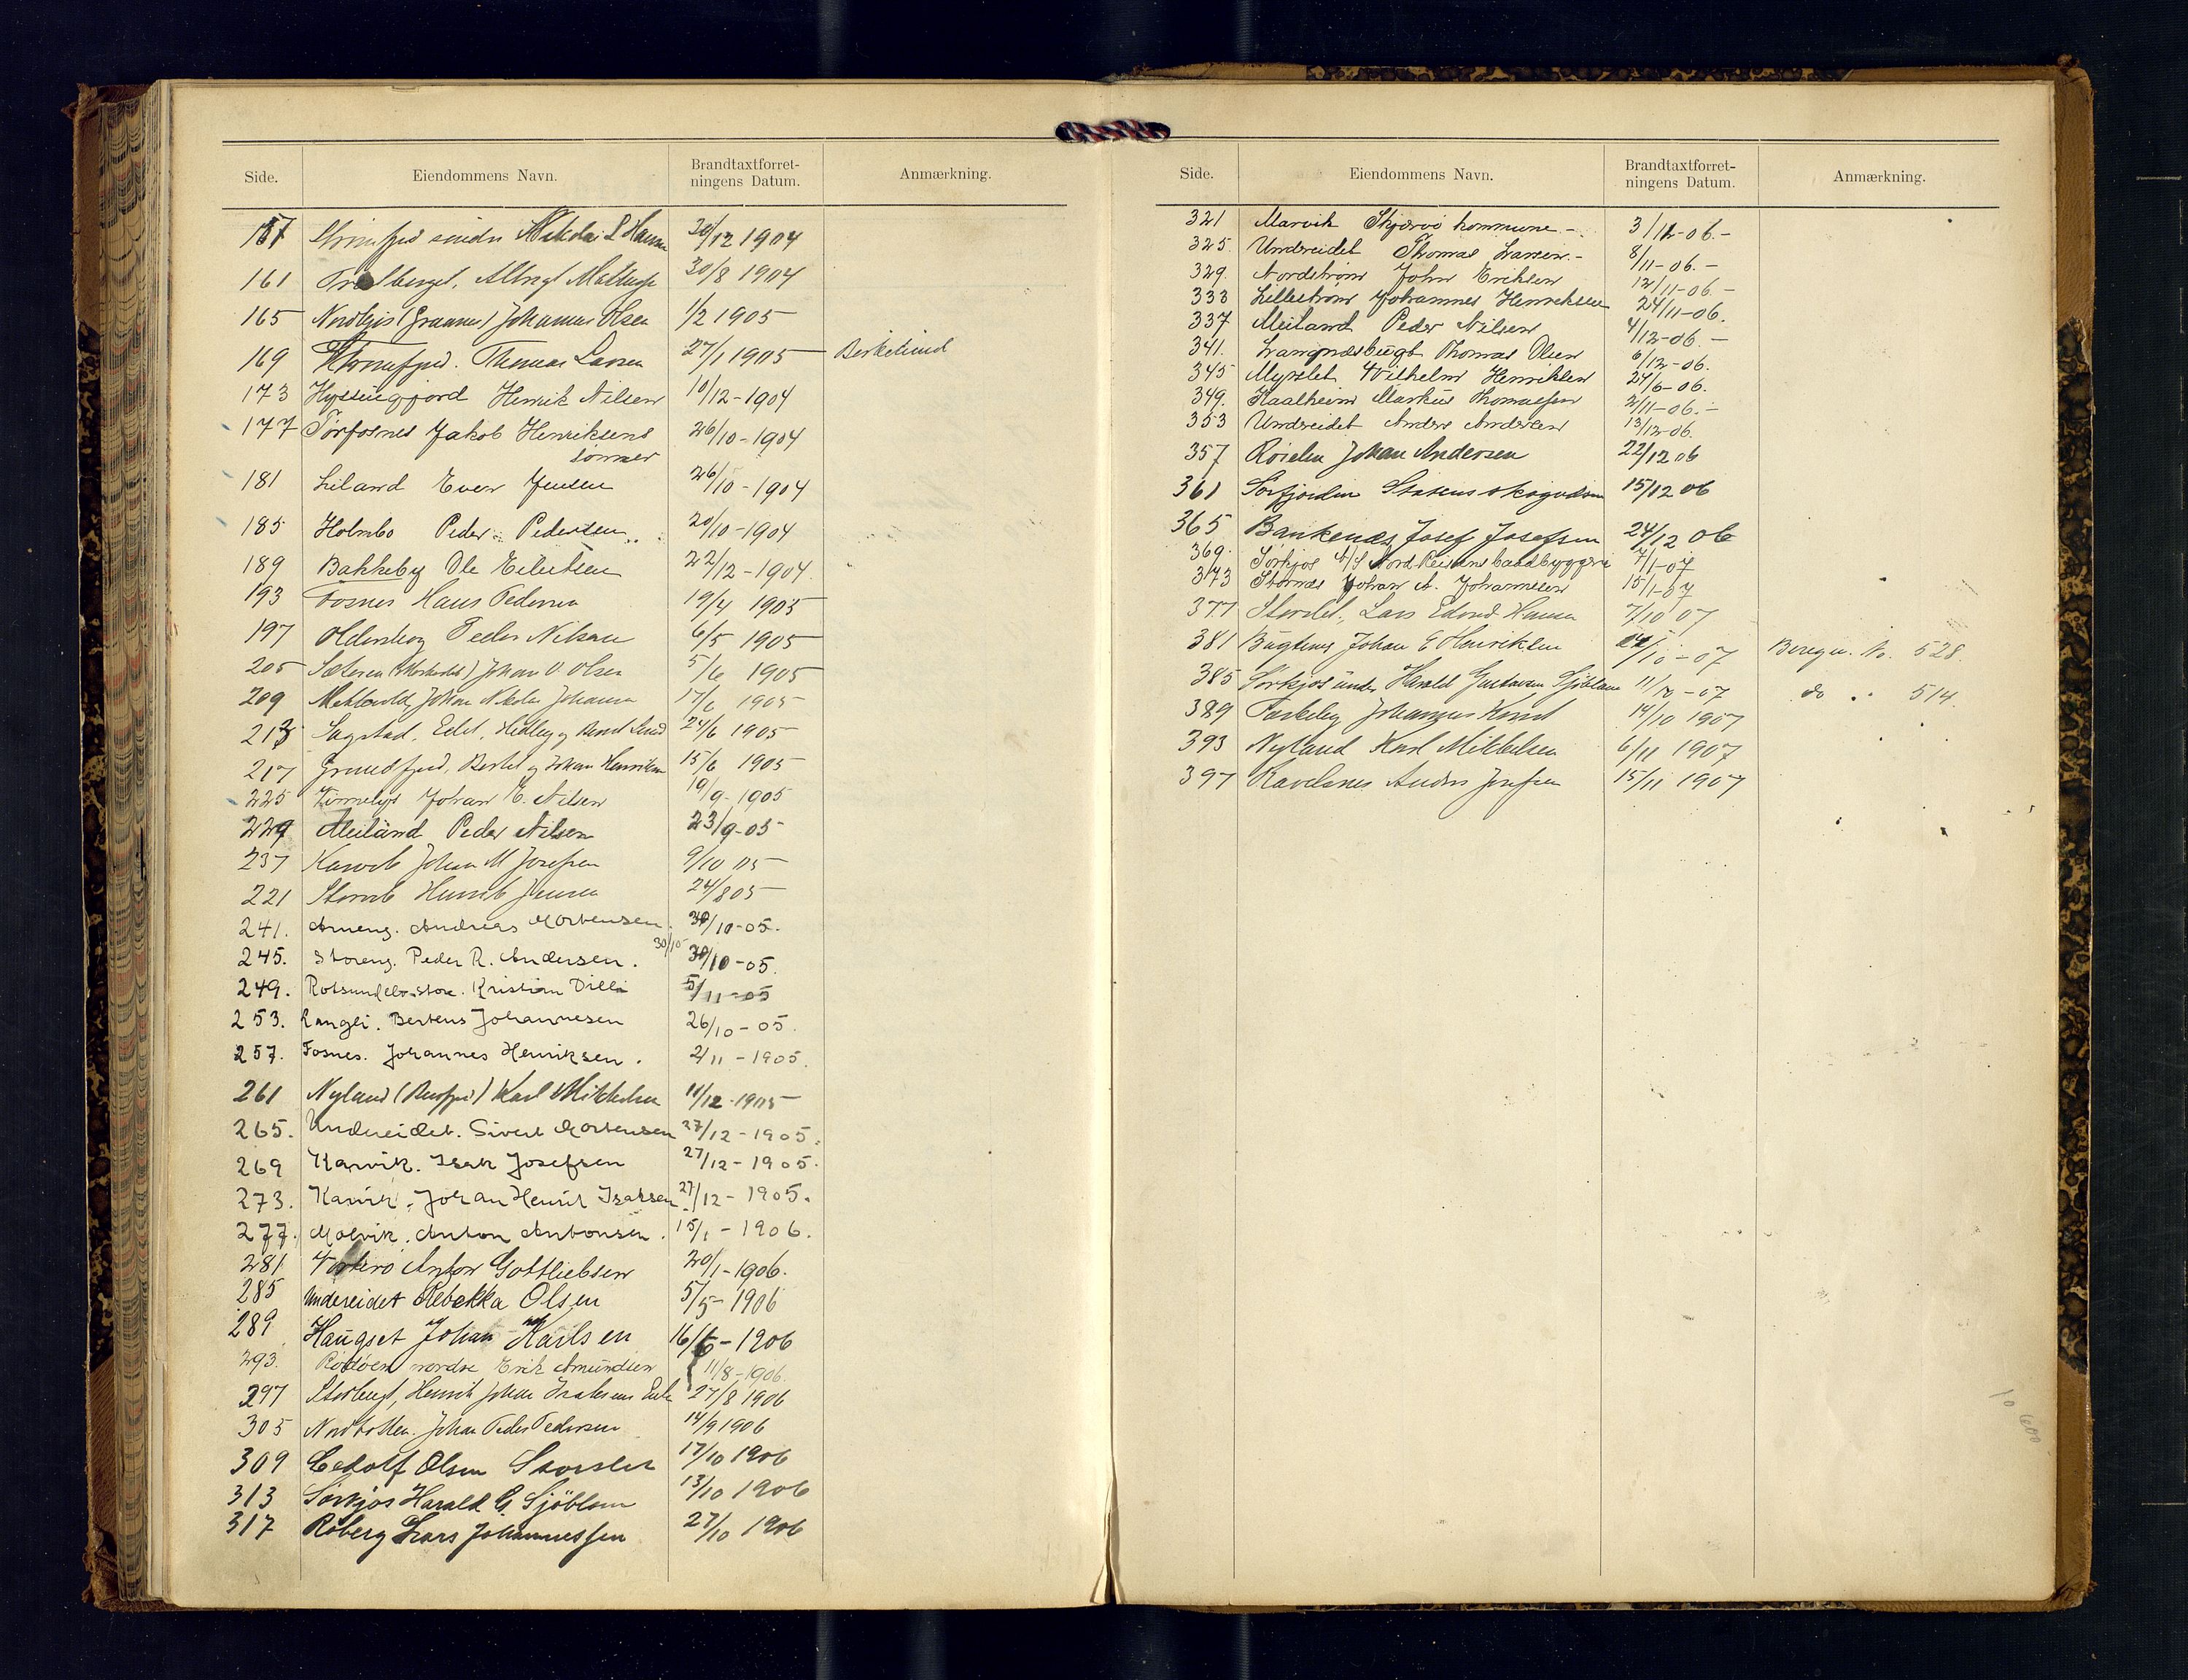 Side. Eiendommens Navn. Brandtaxtforret-
ningens Datum. Anmærkning.
157 Nikolai L Hansen 30/12 1904
161 30/8 1904
165 Johannes Olsen 1/2 1905
169 Thomas Larsen 27/1 1905 Birkelund
173 Henrik Nilsen 10/12-1904
177 Torfosnes Jakob Henriksens 26/10-1904
sönner
181 Liland Even Jensen 26/10-1904
185 Holmbo Peder Pedersen 20/10-1904
189 Bakkeby Ole Eilertsen 22/12-1904
193 Fosnes Hans Pedersen 19/4 1905
197 Olderskog Peder Nilsen 6/5 1905
205 Johan O Olsen 5/6 1905
209 Johan Nikolai Johansen 17/6 1905
213 Sagstad, 24/6 1905
217 Grundfjord, Bertel og Johan Henriksen 15/6 1905
225 Johan E. Nilsen 19/9 1905
229 Meiland Peder Nilsen 23/9-05
237 Karvik Johan M Josefsen 9/10 05
221 Storvik Henrik Jensen 24/8 05
241. Arneng. Andreas Mortensen. 30/10-05.
30/10
245. Storeng. Peder R. Andersen. 30/10-05.
249. Kristian Dilli 5/11-05
253. Langli. Bertens Johannesen 26/10-05.
257. Fosnes. Johannes Henriksen. 2/11-1905.
261 Nyland Karl Mikkelsen 11/12-1905
265. Undereidet. Sivert Mortensen 27/12-1905.
269 Karvik. Isak Josefsen 27/12-1905.
273. Karvik. Johan Henrik Isaksen 27/12-1905.
277. Molvik. Anton Antonsen. 15/1-1906.
281 Vorterö Anton Gottliebsen 20/1-1906.
285 Undereidet Rebekka Olsen 5/5-1906
289 Haugset Johan Karlsen 16/6-1906
293. Rödöen nordre Erik Amundsen 11/8-1906.
297 Storbugt, Henrik Johan Isaksens Enke 27/8 1906
305 Nordbotten. Johan Peder Pedersen 14/9 1906
309 Cedolf Olsen Storslet 17/10 1906
313 Sörkjos Harald G. Sjöblom 13/10 1906
317 Roberg Lars Johannessen 27/10 1906
Side. Eiendommens Navn. Brandtaxtforret-
ningens Datum. Anmærkning.
321 Marvik Skjærvö kommune.- 3/12-06.-
325. Undereidet Thomas Larsen.- 8/11-06.-
329. Nordström John Eriksen 12/11-06.-
333 Lilleström Johannes Henriksen 24/11-06.
337 Meiland Peder Nilsen 4/12-06.-
341. Langnæsbugt Thomas Olsen 6/12-06.
345 Myrslet Vilhelm Henriksen 24/6-06.
349. Kaalheim Markus Thomassen 2/11-06.-
353 Undereidet Anders Andersen 13/12-06.
357 Röielen Johan Andersen 22/12 06
361 Sörfjorden Statens skogvæsen 15/12 06
365 Bankenes Josef Josefsen 24/12 06
369. Sörkjos A/S Nord Reisens baadbyggeri 7/1-07
373 Stornes Johan A. Johannesen 15/1-07
377 Storslet, Lars Edvard Hansen 7/10 07
381 Bugtenes Johan E Henriksen 24/10-07 Beregn. No. 528.
385 Sörkjos under Harald Gustavsen Sjöblom 11/10-07 do " 514.
389 Johannes 14/10 1907
393 Nyland Karl Mikkelsen 6/11 1907
397 Ravelsnes Anders Josefsen 15/11 1907
10 600